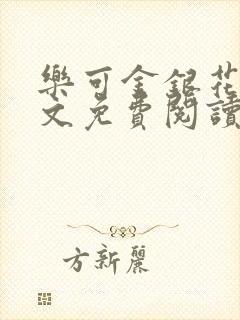 樂可金銀花
文免費閱讀
方新麗